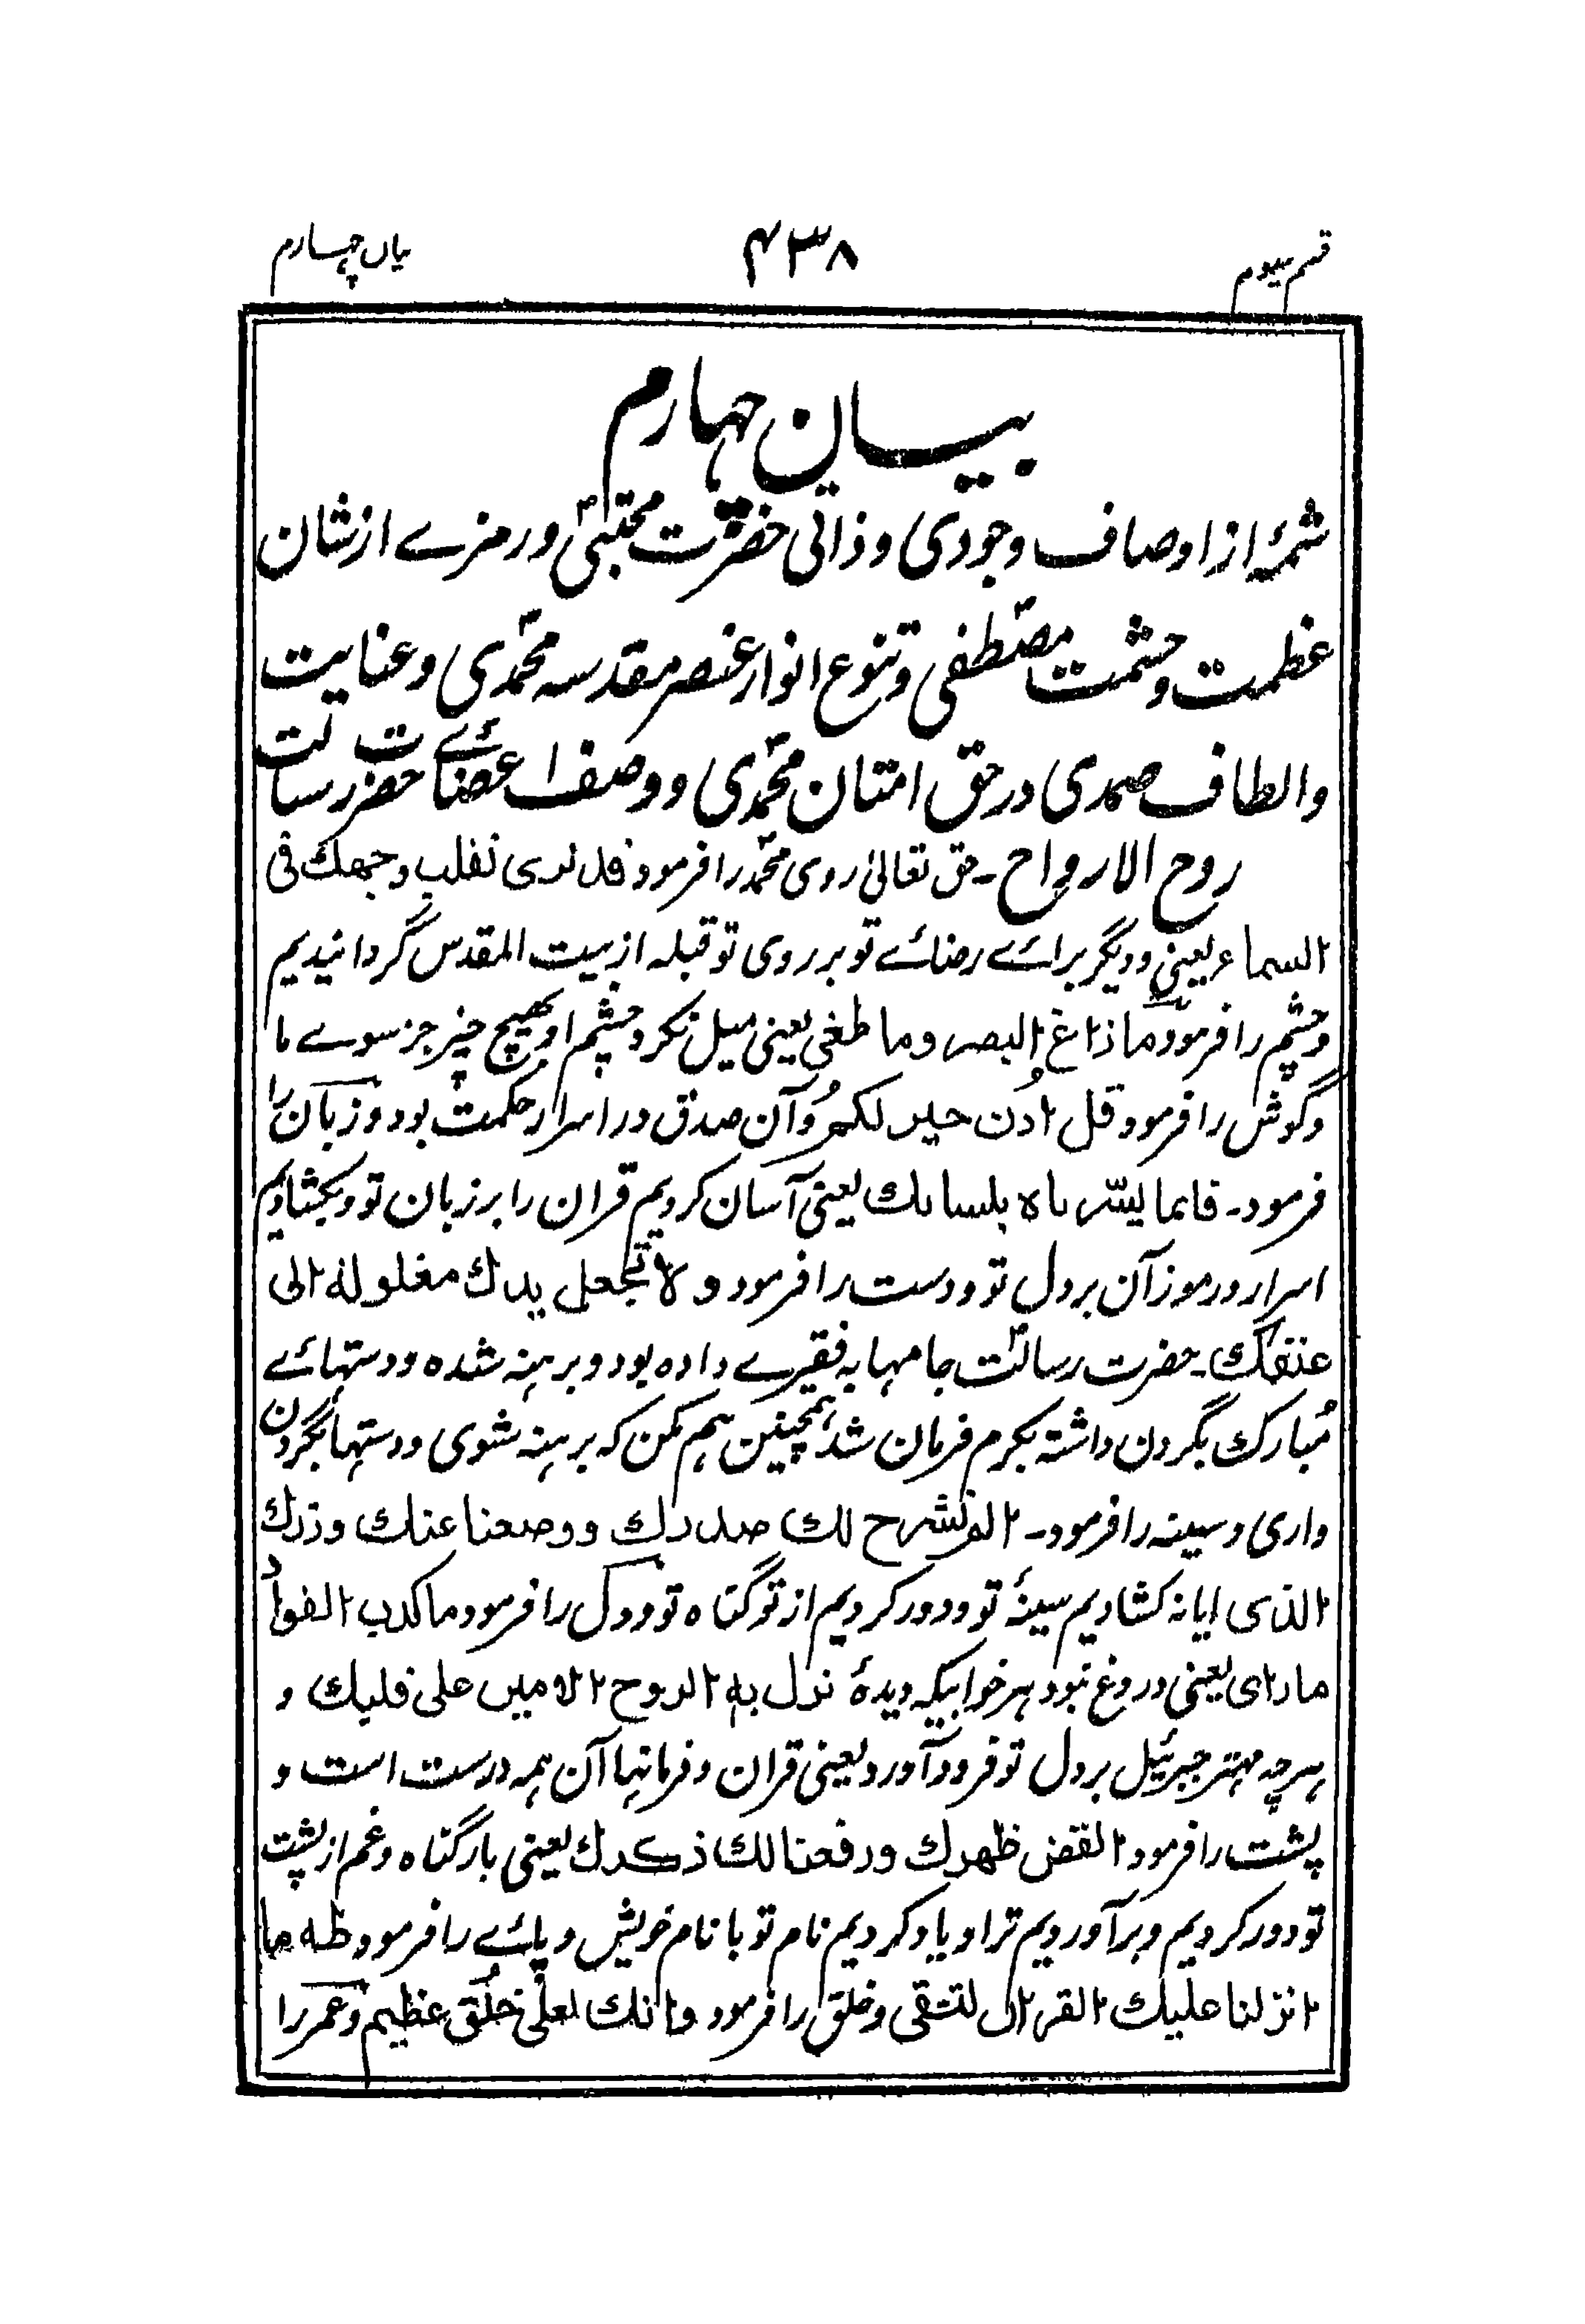 قسم سیوم ۴۳۸ بیان چہارم
بیان چہارم
شمۂ از اوصاف وجودی و ذاتی حضرت مجتبیٰؐ و رمزے از شان
عظمت و حشمت مصطفیؐ و تنوع انوار عنصر مقدسہ محمدیؐ و عنایت
والطاف صمدی در حق امتنان محمدیؐ و وصف اعضائے حضرت رسالت
روح الارواح۔ حق تعالیٰ روی محمدؐ را فرمود قد نری تقلب وجهك فی
السماء یعنی و دیگر برائے رضائے تو بر روی تو قبلہ از بیت المقدس گردانیدیم
و چشم را فرمود ما زاغ البصر وما طغی یعنی میل نکرد چشم او بھیچ چیز جز سوے ما
و گوش را فرمود قل اُذن خیر لکم و آن صدق در اسرار حکمت بود و زبان را
فرمود۔ فانما یسّرناه بلسانك یعنی آسان کردیم قران را بر زبان تو و بکشادیم
اسرار و رموز آن بر دل تو و دست را فرمود و لا تجعل یدك مغلولة الی
عنقك۔ حضرت رسالتؐ جامہا بہ فقیرے دادہ بود و برہنہ شدہ و دستہائے
مُبارک بگردن داشتہ بکرم فرمان شد ہمچنین ہم مکن کہ برہنہ شوی و دستہا بگردن
داری و سینہ را فرمود۔ الم نشرح لك صدرك ووضعنا عنك وزرك
الذی ایا نہ کشادیم سینۂ تو و دور کردیم از تو گناہ تو و دل را فرمود ما کذب الفوأد
ما رأی یعنی دروغ نبود ہر خوابیکہ دیدۂ نزل به الروح الامین علی قلبك و
ہرچہ مہتر جبرئیل بر دل تو فرود آورد یعنی قران و فرمانہا آن ہمہ درست است و
پشت را فرمود انقض ظهرك ورفعنا لك ذکرك یعنی بار گناہ و غم از پشت
تو دور کردیم و برآوردیم ترا و یاد کردیم نام تو با نام خویش و پائے را فرمود طه ما
انزلنا علیك القرآن لتشقی و خلق را فرمود وانك لعلٰی خلُق عظیم و عمر را